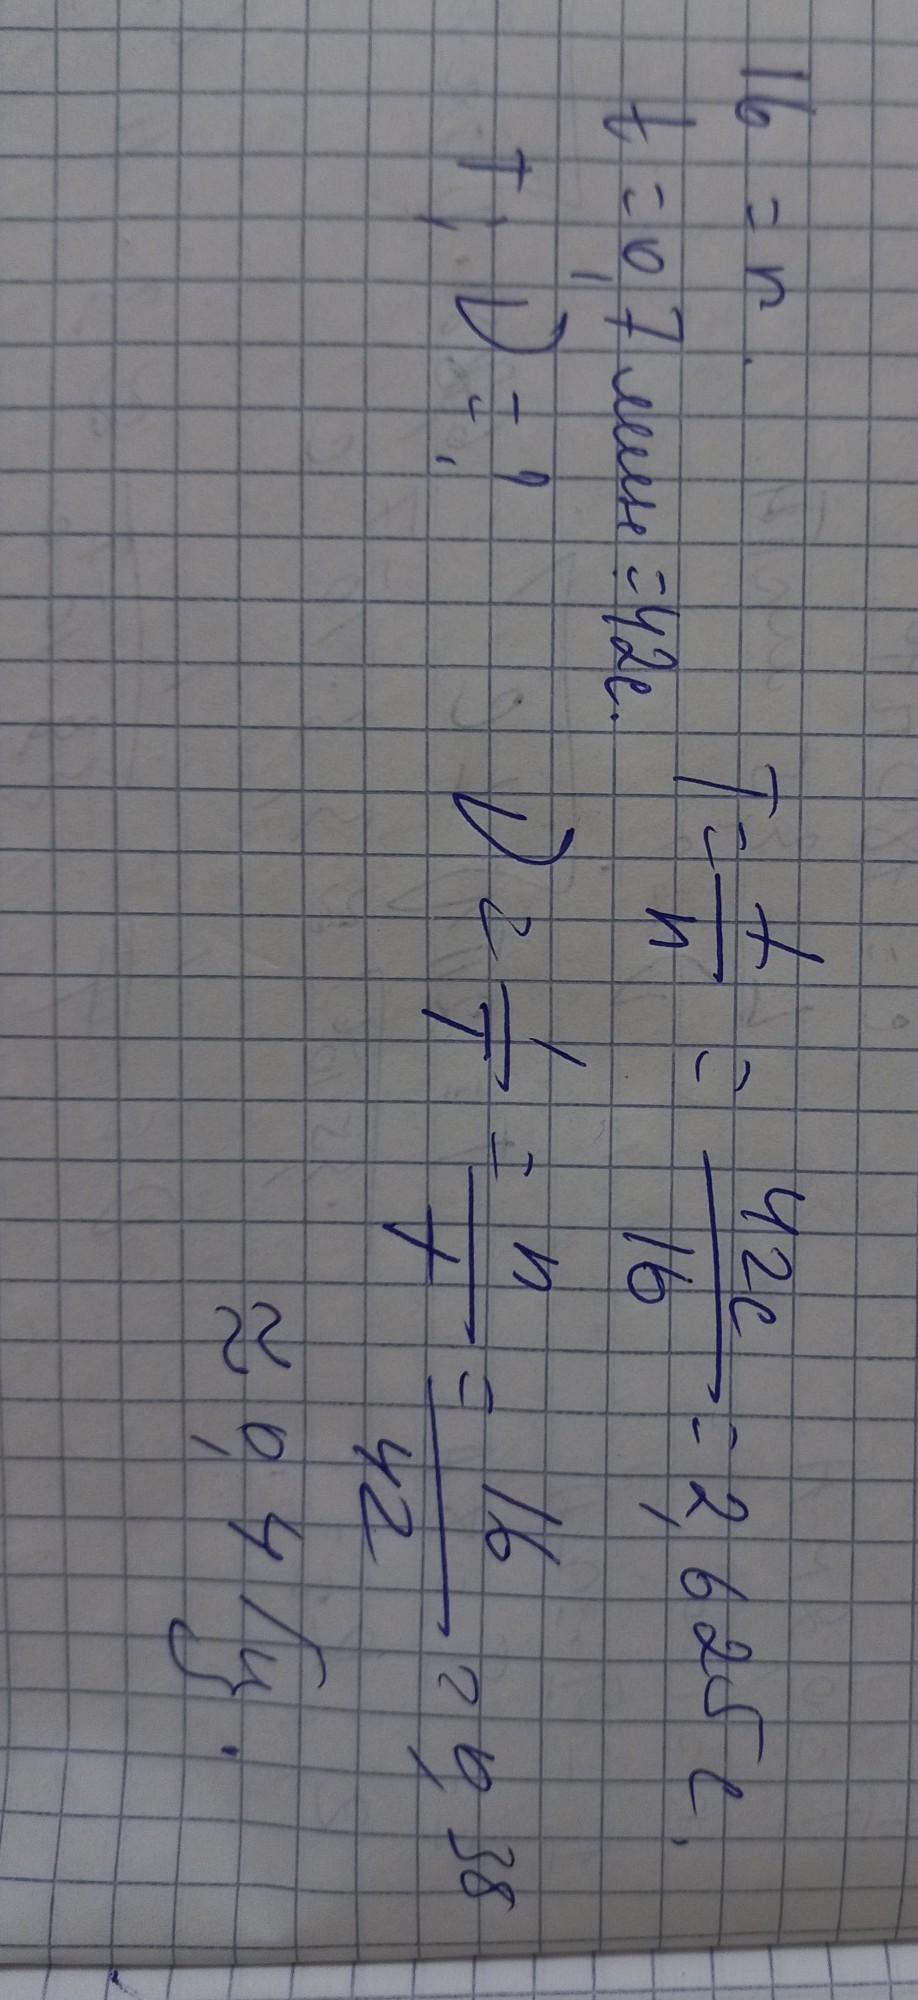 16 = n.
t = 0,7 мин = 42с.
T, ν = ?
T = t/n = 42с/16 = 2,625 с.
ν = 1/T = n/t = 16/42 = 0,38
≈ 0,4 Гц.